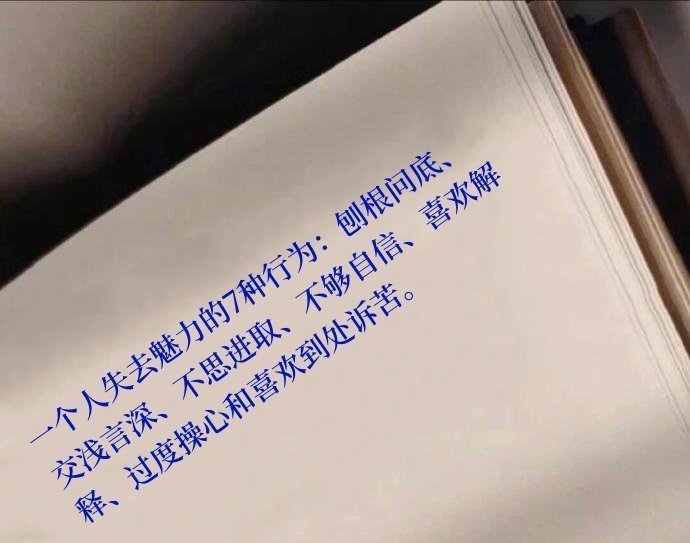 一个人失去魅力的7种行为：刨根问底、
交浅言深、不思进取、不够自信、喜欢解
释、过度操心和喜欢到处诉苦。